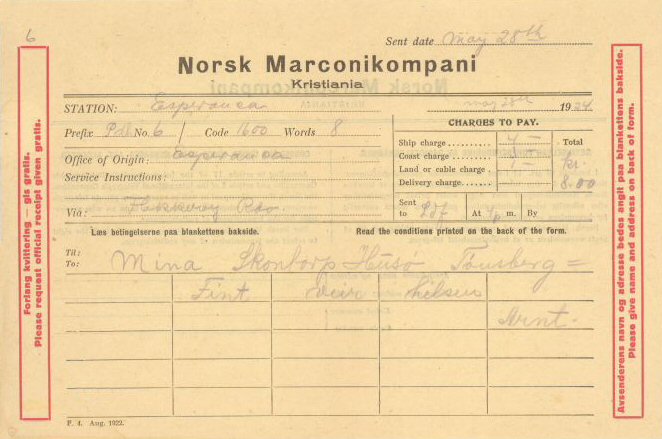 6
Sent date May 28th
Norsk Marconikompani
Kristiania
STATION: Esperanca May 28th 1924
Prefix Pdl. No. 6 / Code 1600 Words 8
CHARGES TO PAY.
Ship charge
Total
Coast charge
Land or cable charge
kr.
Delivery charge
8.00
Office of Origin: Esperanca
Service Instructions:
Via: Rdo
Sent to At m. By
Læs betingelserne paa blankettens bakside.
Read the conditions printed on the back of the form.
Til:
To: Mina Skontorp Husö Tønsberg =
Fint Veir hilsen
Arnt.
F. 4. Aug. 1922.
Forlang kvittering — gis gratis.
Please request official receipt given gratis.
Avsenderens navn og adresse bedes angit paa blankettens bakside.
Please give name and address on back of form.